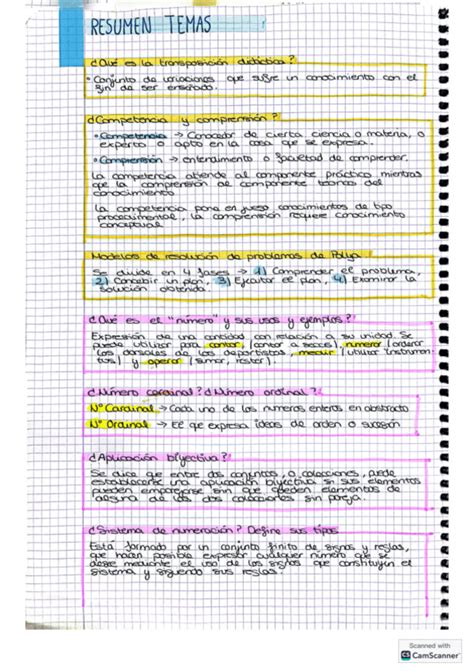 RESUMEN TEMAS
¿Qué es la transposición didáctica?
• Conjunto de variaciones que sufre un conocimiento con el
fin de ser enseñado.
¿Competencia y comprensión?
• Competencia → Conocedor de cierta ciencia o materia, o
experto o apto en la cosa que se expresa.
• Comprensión → entendimiento o facultad de comprender.
La competencia atiende al componente práctico mientras
que la comprensión al componente teórico del
conocimiento
La competencia pone en juego conocimientos de tipo
procedimental, la comprensión requiere conocimiento
conceptual
Modelos de resolución de problemas de Polya
Se divide en 4 fases → 1) Comprender el problema,
2) Concebir un plan, 3) Ejecutar el plan, 4) Examinar la
solución obtenida.
¿Qué es el "número" y sus usos y ejemplos?
Expresión de una cantidad con relación a su unidad. Se
puede utilizar para contar (contar a veces), numerar (ordenar
los dorsales de los deportistas), medir (utilizar instrumen
tos) y operar (sumar, restar).
¿Número cardinal? ¿Número ordinal?
Nº Cardinal → Cada uno de los numeros enteros en abstracto
Nº Ordinal → El que expresa ideas de orden o sucesión
¿Aplicación biyectiva?
Se dice que entre dos conjuntos, o colecciones, puede
establecerse una aplicación biyectiva si sus elementos
pueden emparejarse sin que queden elementos de
alguna de las dos colecciones sin pareja
¿Sistema de numeración? Define sus tipos
Está formado por un conjunto finito de signos y reglas,
que hacen posible expresar cualquier número que se
desee mediante el uso de los signos que constituyen el
sistema y siguiendo sus reglas.
Scanned with
CS CamScanner